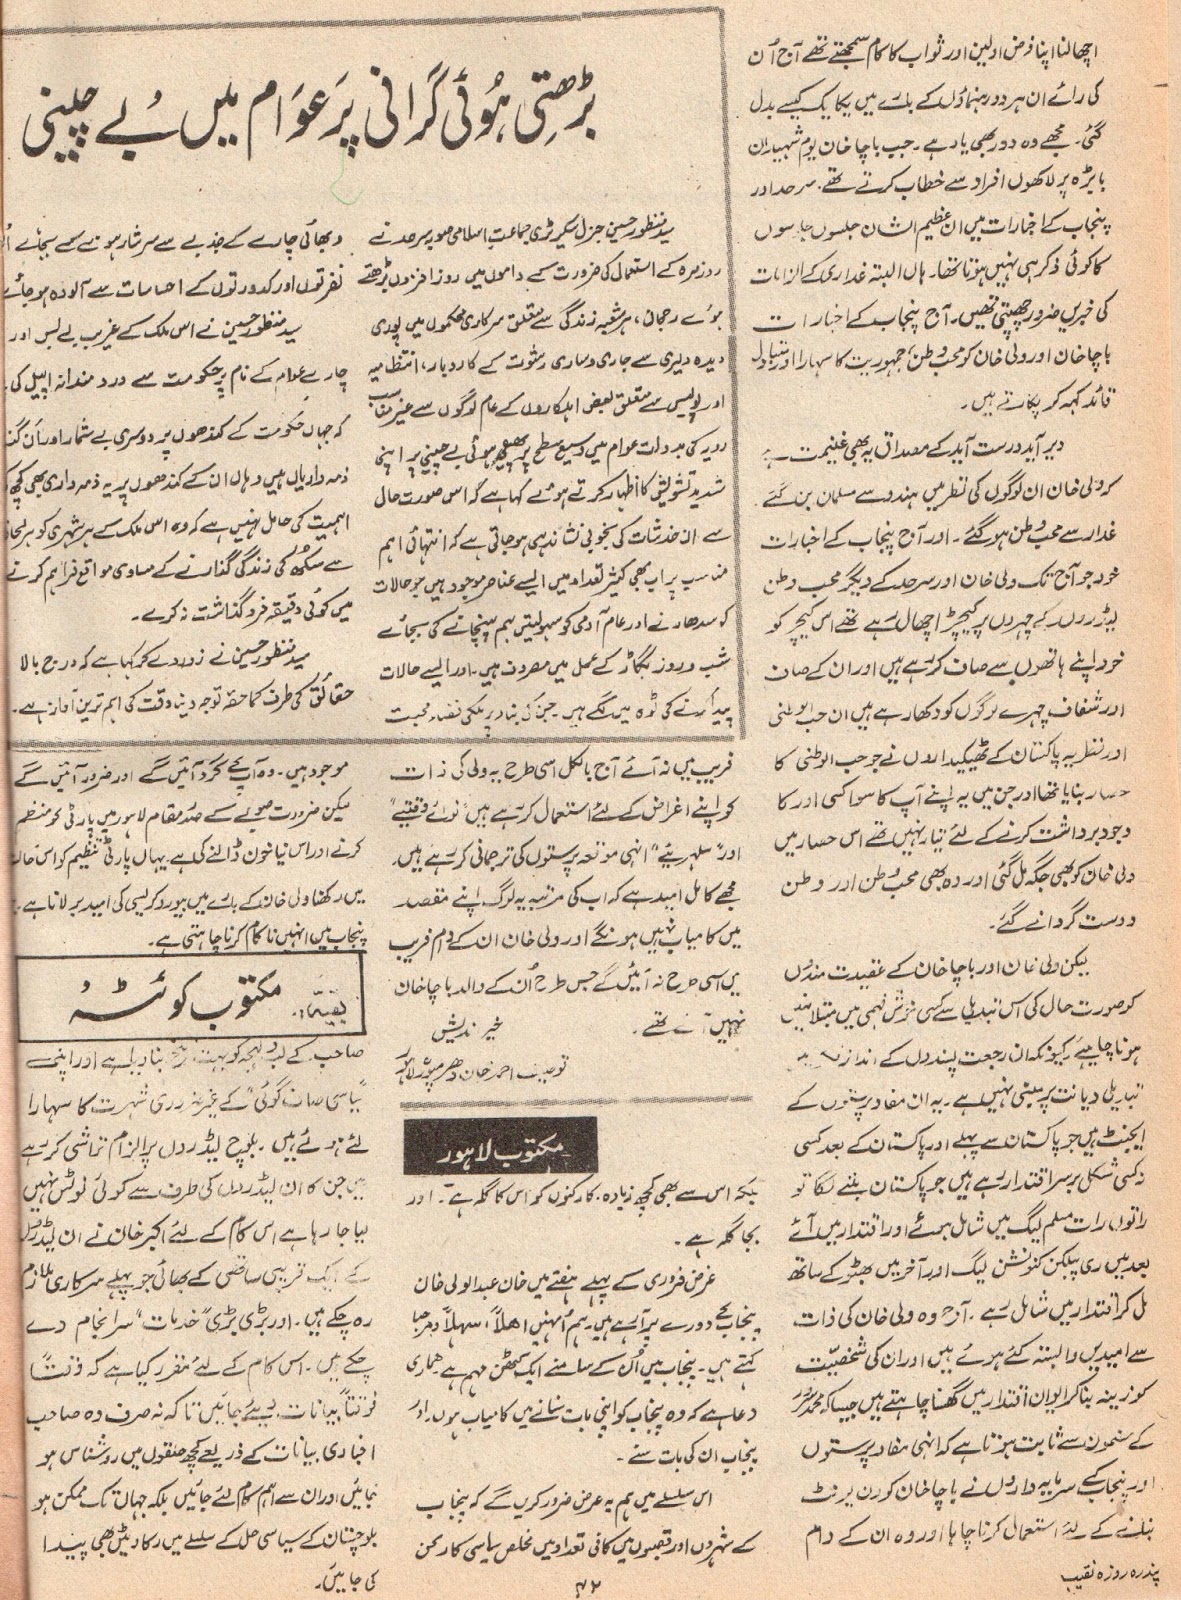 اچھالنا اپنا فرض اولین اور ثواب کا کام سمجھتے تھے آج اُن
کی رائے ان ہر دو رہنماؤں کے بارے میں یکایک کیسے بدل
گئی۔ مجھے وہ دور بھی یاد ہے۔ جب باچا خان یوم شہیدان
بابڑہ پر لاکھوں افراد سے خطاب کرتے تھے۔ سرحد اور
پنجاب کے اخبارات میں ان عظیم الشان جلسوں جلوسوں
کا کوئی ذکر ہی نہیں ہوتا تھا۔ ہاں البتہ غداری کے الزامات
کی خبریں ضرور چھپتی تھیں۔ آج پنجاب کے اخبارات
باچا خان اور ولی خان کو محب وطن، جمہوریت کا سہارا اور متبادل
قائد کہہ کر پکارتے ہیں۔
دیر آید درست آید کے مصداق یہ بھی غنیمت ہے
کہ ولی خان ان لوگوں کی نظر میں ہندو سے مسلمان بن گئے
غدار سے محب وطن ہو گئے۔ اور آج پنجاب کے اخبارات
خود جو آج تک ولی خان اور سرحد کے دیگر محب وطن
لیڈروں کے چہروں پر کیچڑ اچھال رہے تھے اس کیچڑ کو
خود اپنے ہاتھوں سے صاف کر رہے ہیں اور ان کے صاف
اور شفاف چہرے لوگوں کو دکھا رہے ہیں ان حب الوطنی
اور نظریہ پاکستان کے ٹھیکیداروں نے جو حب الوطنی کا
حصار بنایا تھا اور جن میں یہ اپنے آپ کا سوا کسی اور کا
وجود برداشت کرنے کے لئے تیار نہیں تھے اس حصار میں
ولی خان کو بھی جگہ مل گئی اور وہ بھی محب وطن اور وطن
دوست گردانے گئے۔
لیکن ولی خان اور باچا خان کے عقیدت مندوں
کو صورت حال کی اس تبدیلی سے کسی خوش فہمی میں مبتلا نہیں
ہونا چاہیے کیونکہ ان رجعت پسندوں کے انداز
تبدیلی دیانت پر مبنی نہیں ہے۔ یہ ان مفاد پرستوں کے
ایجنٹ ہیں جو پاکستان سے پہلے اور پاکستان کے بعد کسی
نہ کسی شکل برسراقتدار رہے ہیں جو پاکستان بننے لگا تو
راتوں رات مسلم لیگ میں شامل ہوئے اور اقتدار میں آئے
بعد میں ری پبلکن کنونشن لیگ اور آخر میں بھٹو کے ساتھ
مل کر اقتدار میں شامل رہے۔ آج وہ ولی خان کی ذات
سے امیدیں وابستہ کئے ہوئے ہیں اور ان کی شخصیت
کو زینہ بنا کر ایوان اقتدار میں گھسنا چاہتے ہیں جیسا کہ محمد سرور
کے مضمون سے ثابت ہوتا ہے کہ انہی مفاد پرستوں
اور پنجاب کے سرمایہ داروں نے باچا خان کو ون یونٹ
بننے کے لئے استعمال کرنا چاہا اور وہ ان کے دام
بڑھتی ہوئی گرانی پر عوام میں بے چینی
سید منظور حسین جنرل سیکرٹری جماعت اسلامی صوبہ سرحد نے
روزمرہ کے استعمال کی ضرورت کے داموں میں روز افزوں بڑھتے
ہوئے رجحان، ہر شعبہ زندگی سے متعلق سرکاری محکموں میں پوری
دیدہ دلیری سے جاری و ساری رشوت کے کاروبار، انتظامیہ
اور پولیس سے متعلق بعض اہلکاروں کے عام لوگوں سے غیر مناسب
رویہ کی بدولت عوام میں وسیع سطح پر پھیلی ہوئی بے چینی پر اپنی
شدید تشویش کا اظہار کرتے ہوئے کہا ہے کہ اس صورت حال
سے ان خدشات کی بخوبی نشاندہی ہو جاتی ہے کہ انتہائی اہم
مناسب پر اب بھی کثیر تعداد میں ایسے عناصر موجود ہیں جو حالات
کو سدھارنے اور عام آدمی کو سہولتیں بہم پہنچانے کی بجائے
شب و روز بگاڑ کے عمل میں مصروف ہیں۔ اور ایسے حالات
پیدا کرنے کی ٹوہ میں لگے ہیں۔ جن کی بناء پر ملکی فضاء محبت
و بھائی چارے کے جذبے سے سرشار ہونے کے بجائے
نفرتوں اور کدورتوں کے احساسات سے آلودہ ہو جائے
سید منظور حسین نے اس ملک کے غریب بے بس اور
چارے عوام کے نام پر حکومت سے درد مندانہ اپیل کی
کہ جہاں حکومت کے کندھوں پر دوسری بے شمار اور اَن گنت
ذمہ داریاں ہیں وہاں ان کے کندھوں پر یہ ذمہ داری بھی کچھ کم
اہمیت کی حامل نہیں ہے کہ وہ اس ملک کے ہر شہری کو ہر لحاظ
سے سکھ کی زندگی گذارنے کے مساوی مواقع فراہم کرنے
میں کوئی دقیقہ فروگذاشت نہ کرے۔
سید منظور حسین نے زور دے کر کہا ہے کہ درج بالا
حقائق کی طرف کما حقہ توجہ دینا وقت کی اہم ترین آواز ہے۔
فریب میں نہ آئے آج بالکل اسی طرح یہ ولی کی ذات
کو اپنے اغراض کے لئے استعمال کر رہے ہیں "نوائے وقتیے"
اور "سلہریئے" انہی موقعہ پرستوں کی ترجمانی کر رہے ہیں۔
مجھے کامل امید ہے کہ اب کی مرتبہ یہ لوگ اپنے مقصد
میں کامیاب نہیں ہونگے اور ولی خان ان کے دام فریب
میں اسی طرح نہ آئیں گے جس طرح اُن کے والد باچا خان
نہیں آئے تھے۔
خیر اندیش
توصیف احمد خان دھرمپورہ لاہور
مکتوب لاہور
بلکہ اس سے بھی کچھ زیادہ۔ کارکنوں کو اس کا گلہ ہے۔ اور
بجا گلہ ہے۔
غرض فروری کے پہلے ہفتے میں خان عبدالولی خان
پنجاب کے دورے پر آ رہے ہیں۔ ہم اُنہیں اھلاً، سہلاً و مرحبا
کہتے ہیں۔ پنجاب میں اُن کے سامنے ایک کٹھن مہم ہے۔ ہماری
دعا ہے کہ وہ پنجاب کو اپنی بات سنانے میں کامیاب ہوں۔ اور
پنجاب ان کی بات سنے۔
اس سلسلے میں ہم یہ عرض ضرور کریں گے کہ پنجاب
کے شہروں اور قصبوں میں کافی تعداد میں مخلص سیاسی کارکن
موجود ہیں۔ وہ آپ کے گرد آئیں گے اور ضرور آئیں گے
لیکن ضرورت صوبے کے صدر مقام لاہور میں پارٹی کو منظم
کرنے اور اس نیا خون ڈالنے کی ہے۔ یہاں پارٹی تنظیم کو اس حالت
میں رکھنا ولی خان کے بارے میں بیورو کریسی کی امید بر لانا ہے۔
پنجاب میں انہیں ناکام کرنا چاہتی ہے۔
بقیہ: مکتوب کوئٹہ
صاحب کے لب و لہجہ کو بہت بنا دیا ہے اور اپنی
سیاسی صاف گوئی" کے غیر ضروری شہرت کا سہارا
لئے ہوئے ہیں۔ بلوچ لیڈروں پر الزام تراشی کر رہے
ہیں جن کا ان لیڈروں کی طرف سے کوئی نوٹس نہیں
لیا جا رہا ہے اس کام کے لئے اکبر خان نے ان لیڈروں
کے ایک قریبی ساتھی کے بھائی جو پہلے سرکاری ملازم
رہ چکے ہیں۔ اور بڑی بڑی "خدمات" سرانجام دے
چکے ہیں۔ اس کام کے لئے مقرر کیا ہے کہ وقتاً
فوقتاً بیانات دیئے جائیں تاکہ نہ صرف وہ صاحب
اخباری بیانات کے ذریعے کچھ حلقوں میں روشناس ہو
جائیں اور ان سے اہم کام لئے جائیں بلکہ جہاں تک ممکن ہو
بلوچستان کے سیاسی حل کے سلسلے میں رکاوٹیں بھی پیدا
کی جائیں۔
پندرہ روزہ نقیب
۴۲